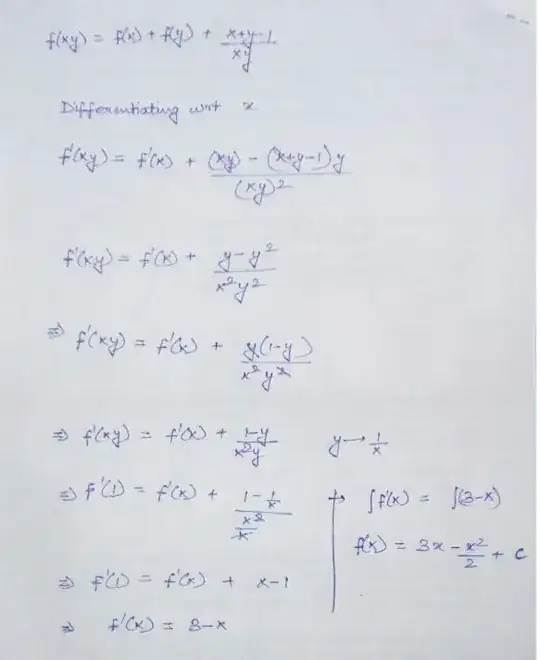 f(xy) = f(x) + f(y) + \frac{x+y-1}{xy}
Differentiating wrt x
f'(xy) = f'(x) + \frac{(xy) - (x+y-1)y}{(xy)^2}
f'(xy) = f'(x) + \frac{y-y^2}{x^2y^2}
⇒ f'(xy) = f'(x) + \frac{y(1-y)}{x^2y^2}
⇒ f'(xy) = f'(x) + \frac{1-y}{x^2y} y → \frac{1}{x}
⇒ f'(1) = f'(x) + \frac{1-\frac{1}{x}}{\frac{x^2}{x}}
⇒ f'(1) = f'(x) + x-1
⇒ f'(x) = 3-x
→ ∫f'(x) = ∫(3-x)
f(x) = 3x - \frac{x^2}{2} + c